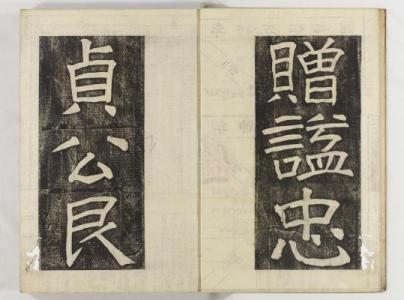 贈謚忠
貞公艮